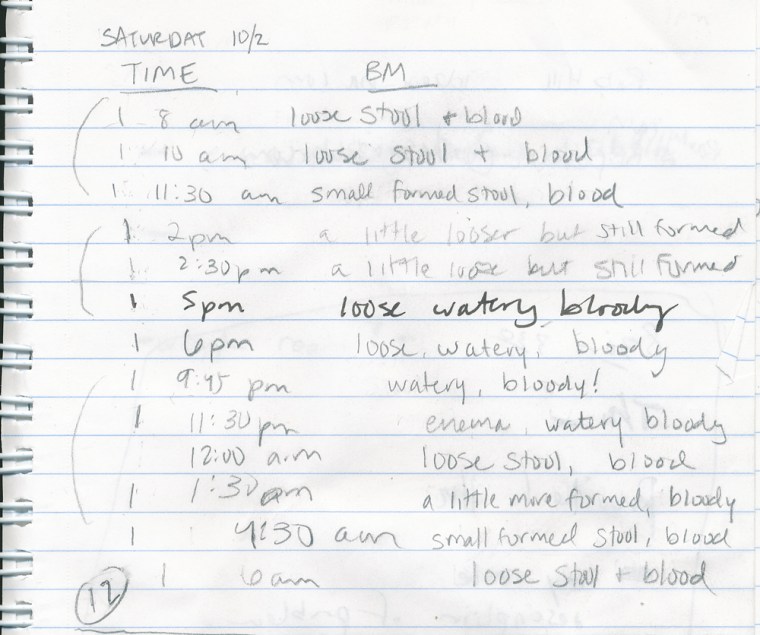 SATURDAY 10/2
TIME BM
1 8 am loose stool + blood
1 10 am loose stool + blood
1 11:30 am small formed stool, blood
1 2pm a little looser but still formed
1 2:30pm a little loose but still formed
1 5pm loose watery bloody
1 6pm loose, watery, bloody
1 9:45 pm watery, bloody!
1 11:30 pm enema, watery bloody
12:00 a.m loose stool, blood
1 1:30 am a little more formed, bloody
1 4:30 am small formed stool, blood
1 6am loose stool + blood
12